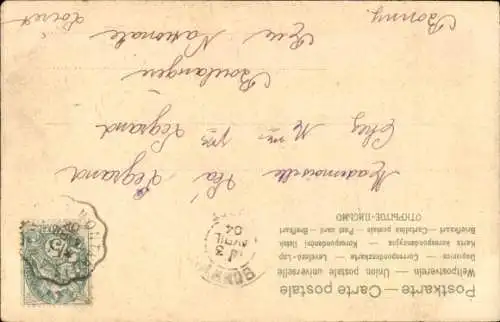 Postkarte — Carte postale
Weltpostverein — Union postale universelle
Dopisnice — Correspondenzkarte — Levelező-Lap
Karta korespondencyjna — Korespondenční lístek
Briefkaart — Cartolina postale — Post card — Brefkort
ОТКРЫТОЕ ПИСЬМО
BONNY
3
AVRIL
04
5
Mademoiselle Léa Legrand
Chez Mme Vve Legrand
Boulangère
Rue Nationale
Bonny
Loiret